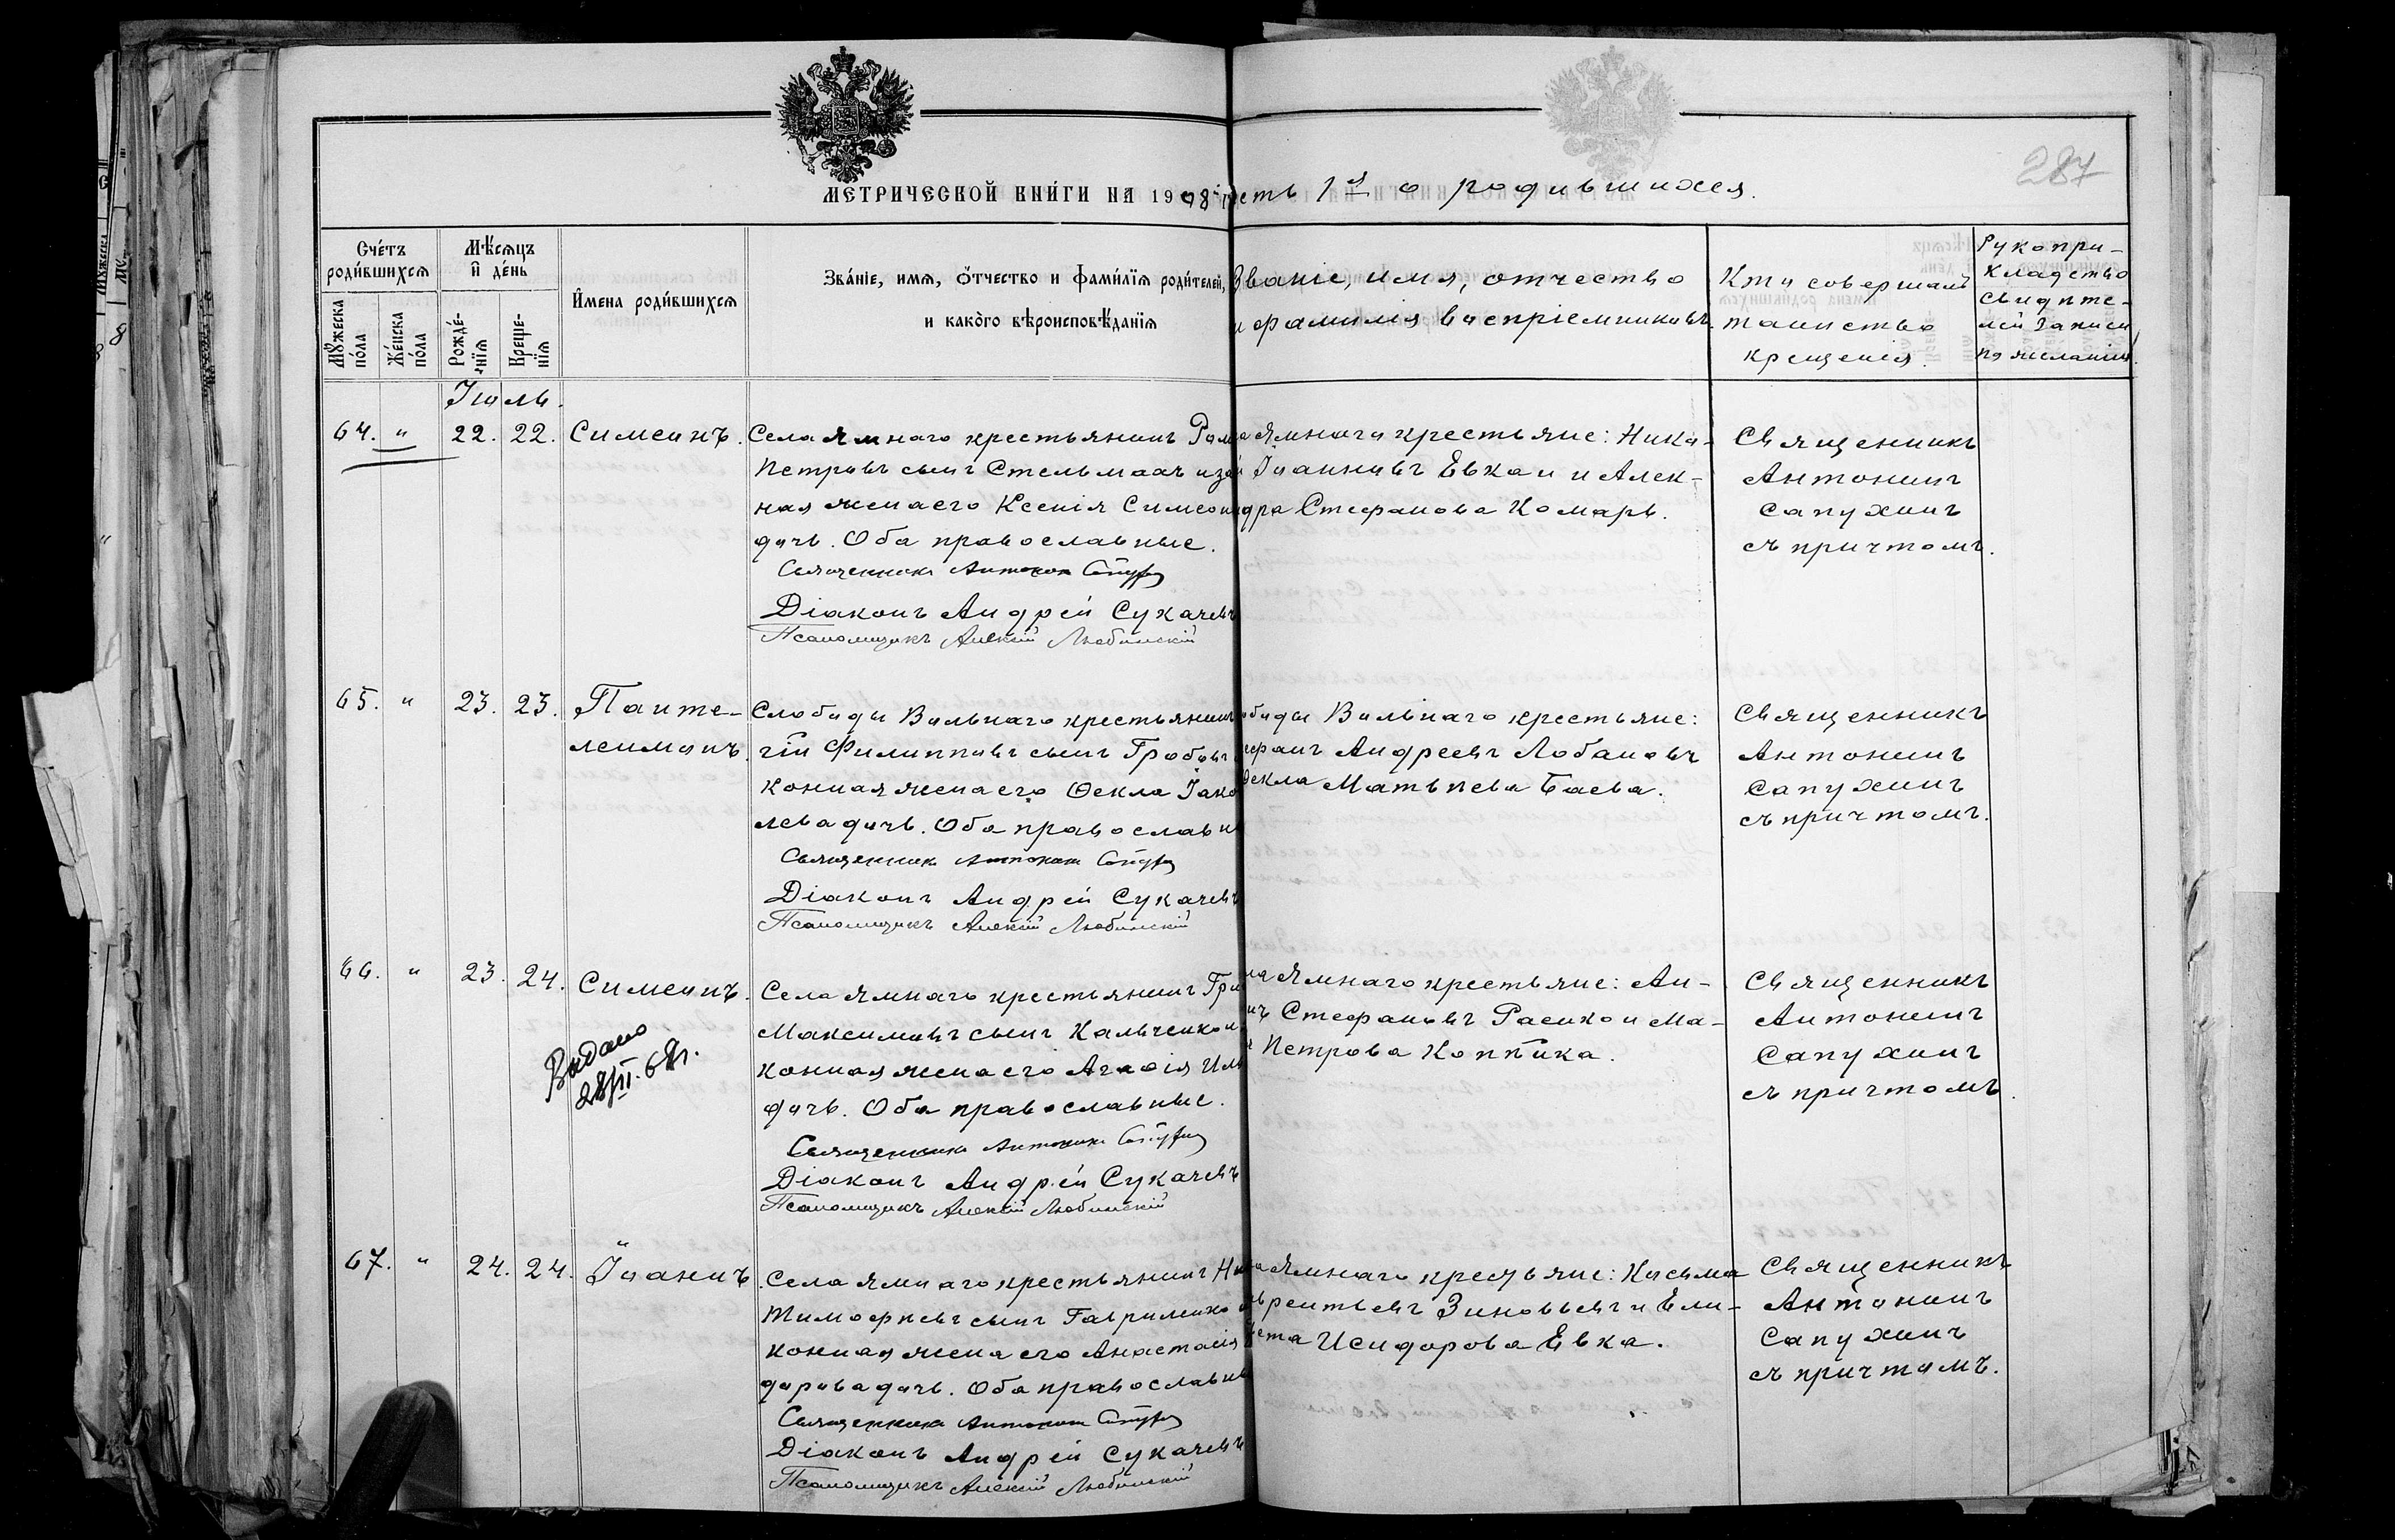 МЕТРИЧЕСКОЙ КНИ́ГИ НА 1908
сть 1я о родившихся.
287
Сче́тъ роди́вшихся
Мѣ́сяцъ и де́нь
Му́жеска по́ла
Же́нска по́ла
Рожде́-нія
Креще-нія
И́мена роди́вшихся
Зва́ніе, имя, о́тчество и фами́лія роди́телей,
и како́го вѣроисповѣ́данія
Званіе, имя, отчество
и фамилія воспріемниковъ.
Кто совершалъ
таинство
крещенія.
Рукопри-
кладство
свидѣте-
лей записи
по желанію.
Іюль.
64. " 22. 22. Симеонъ.
Села Ямнаго крестьянинъ Ром
Петровъ сынъ Стельмахъ и за
ная жена его Ксенія Симеон
дочь. Оба православные.
Священникъ Антонин
Діаконъ Андрей Сукачевъ
Псаломщикъ Алексій Любинскій
а Ямнаго крестьяне: Ника-
Іоанновъ Евка и Алек-
дра Стефанова Комарь.
Священникъ
Антонинъ
Сапухинъ
съ причтомъ.
65. " 23. 23. Панте-
леимонъ.
Слободы Вольнаго крестьянинъ
гій Филипповъ сынъ Гробовъ
конная жена его Ѳекла Іако
лева дочь. Оба православн
Священникъ Антонин
Діаконъ Андрей Сукачевъ
Псаломщикъ Алексій Любинскій
ободы Вольнаго крестьяне:
ефанъ Андреевъ Лобановъ
Ѳекла Матвѣева Баева.
Священникъ
Антонинъ
Сапухинъ
съ причтомъ.
66. " 23. 24. Симеонъ.
Выдано
28/II. 68г.
Села Ямнаго крестьянинъ Гри
Максимовъ сынъ Кальченко и
конная жена его Агаѳія Иль
дочь. Оба православные.
Священникъ Антонин
Діаконъ Андрей Сукачевъ
Псаломщикъ Алексій Любинскій
ла Ямнаго крестьяне: Ан-
нъ Стефановъ Расико и Ма-
Петрова Коптика.
Священникъ
Антонинъ
Сапухинъ
съ причтомъ.
67. " 24. 24. Іоаннъ.
Села Ямнаго крестьянинъ Ни
Тимофѣевъ сынъ Гавриленко и
конная жена его Анастасія
дорова дочь. Оба православны
Священникъ Антонин
Діаконъ Андрей Сукачевъ
Псаломщикъ Алексій Любинскій
а Ямнаго крестьяне: Косьма
врентьевъ Зиновьевъ и Ели-
вета Исидорова Евка.
Священникъ
Антонинъ
Сапухинъ
съ причтомъ.